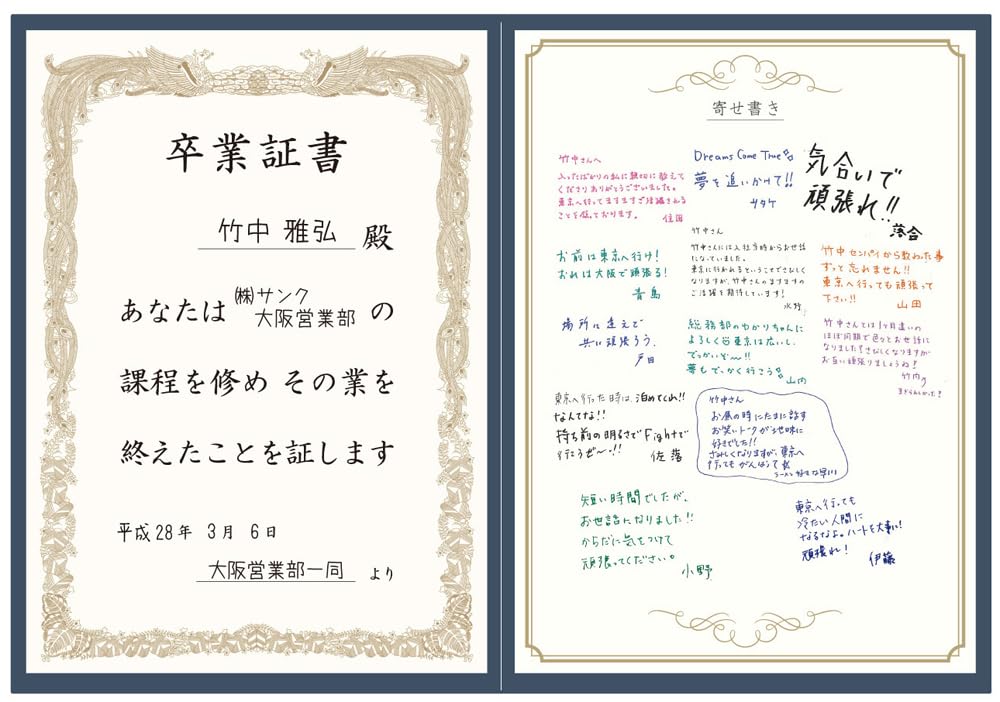 卒業証書
竹中 雅弘 殿
あなたは ㈱サンク
大阪営業部 の
課程を修め その業を
終えたことを証します
平成28年 3月 6日
大阪営業部一同 より
寄せ書き
竹中さんへ
入ったばかりの私に親切に教えて
くださりありがとうございました。
東京へ行ってますますご活躍される
ことを信じております。
住田
Dreams Come True
夢を追いかけて!!
サタケ
気合いで
頑張れ!!
落合
お前は東京へ行け!
おれは大阪で頑張る!
青島
竹中さん
竹中さんには入社当時からお世話
になっていました。
東京に行かれるということでさびしく
なりますが、竹中さんのますますの
ご活躍を期待しています!
水野
竹中センパイから教わった事
ずっと忘れません!!
東京へ行っても頑張って
下さい!!
山田
場所は違えど
共に頑張ろう。
戸田
総務部のゆかりちゃんに
よろしく 東京は広いし、
でっかいぞ〜!!
夢もでっかく行こう
山内
竹中さんとは1ヶ月違いの
ほぼ同期で色々とお世話に
なりました!さびしくなりますが
お互い頑張りましょうね!
竹内
東京へ行った時は、泊めてくれ!!
なんてな!!
持ち前の明るさでFightで
行こうぜ〜!!
佐落
竹中さん
お昼の時にたまに話す
お笑いトークが地味に
好きでした!!
さみしくなりますが、東京へ
行ってもがんばって
ラーメン好きな早川
短い時間でしたが、
お世話になりました!!
からだに気をつけて
頑張ってください。
小野
東京へ行っても
冷たい人間に
なるなよ。ハートを大事に!
頑張れ!
伊藤